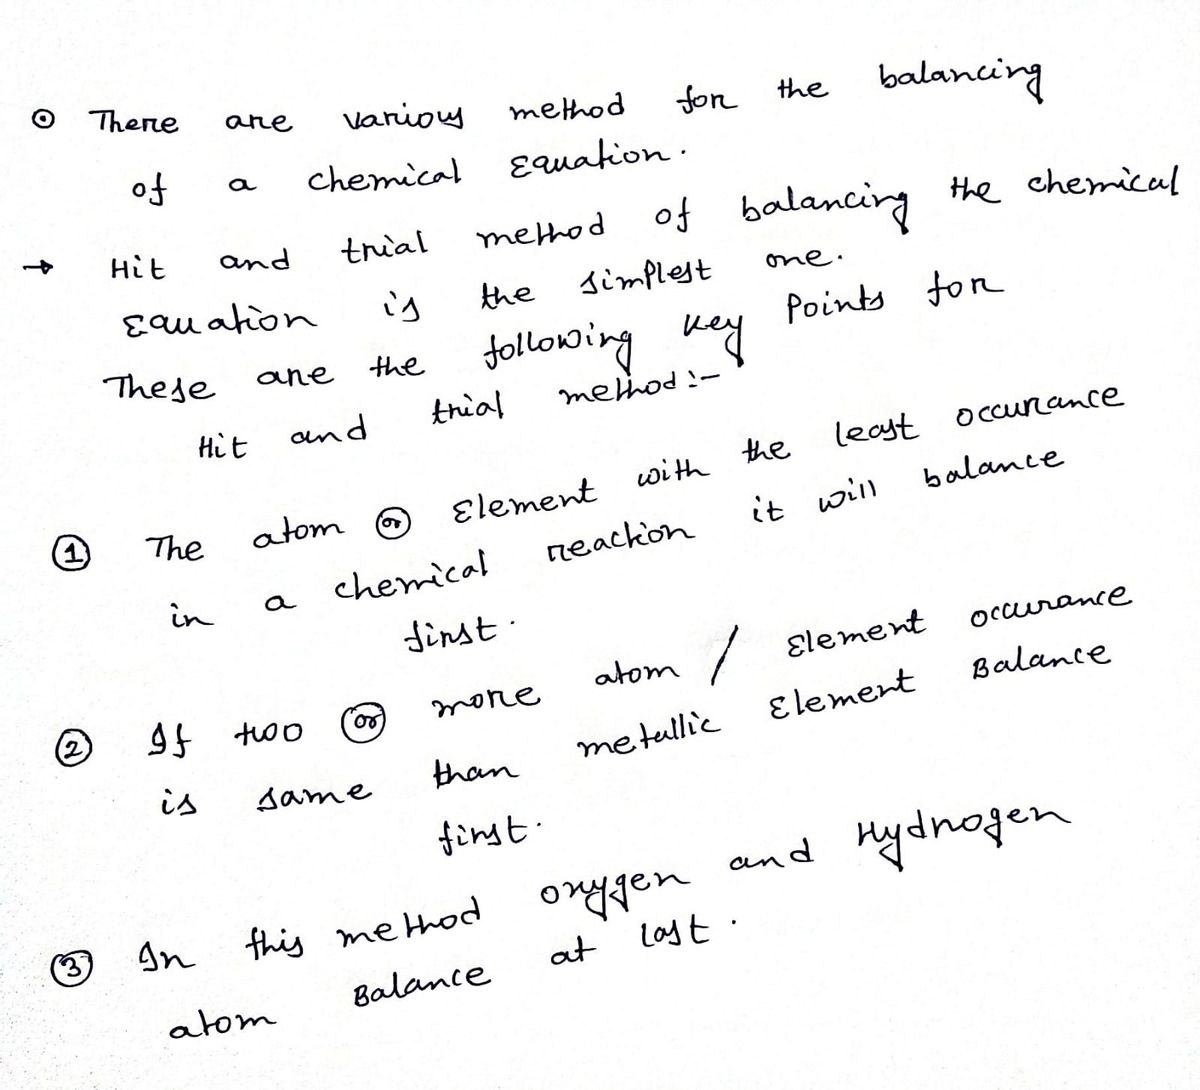 ⊙ There are various method for the balancing
of a chemical Equation.
→ Hit and trial method of balancing the chemical
Equation is the simplest one.
These are the following key Points for
Hit and trial method:-
① The atom or Element with the least occurance
in a chemical reaction it will balance
first.
② If two or more atom / Element occurance
is same than metallic Element Balance
first.
③ In this method oxygen and Hydrogen
atom Balance at last.